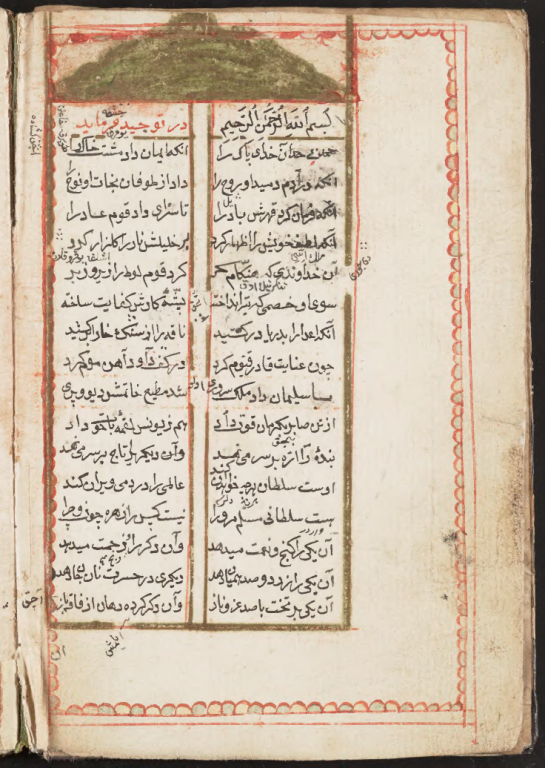 بسم الله الرحمن الرحیم در توحید فرماید
حمد بی حد آن خدای پاک را آنکه ایمان داد مشت خاک را
آنکه در آدم دمید او روح را داد از طوفان نجات او نوح را
آنکه فرمان کرد قهرش باد را تا سزای داد قوم عاد را
آنکه لطف خویش را اظهار کرد بر خلیلش نار را گلزار کرد
آن خداوندی که هنگام سحر کرد قوم لوط را زیر و زبر
سوی او خصمی که تیر انداخته پشه کارش کفایت ساخته
آنکه اعدا را بدریا در کشید ناقه را از سنگ خارا کشید
چون عنایت قادر قیوم کرد در کف داود آهن موم کرد
با سلیمان داد ملک سروری شد مطیع خاتمش دیو و پری
از تن صابر بکرمان قوت داد هم ز یونس لقمه با حوت داد
بنده را اره بر سر می نهد وان دیگر را تاج بر سر می نهد
اوست سلطان هرچه خواهد آن کند عالمی را در دمی ویران کند
هست سلطانی مسلم مر ورا نیست کس را زهره چون و چرا
آن یکی را گنج و نعمت میدهد وان دکر را رنج و زحمت میدهد
آن یکی را زر دو صد همیان دهد دیگری در حسرت نان جان دهد
آن یکی بر تخت با صد عز و ناز وان دکر کرده دهان از فاقه باز